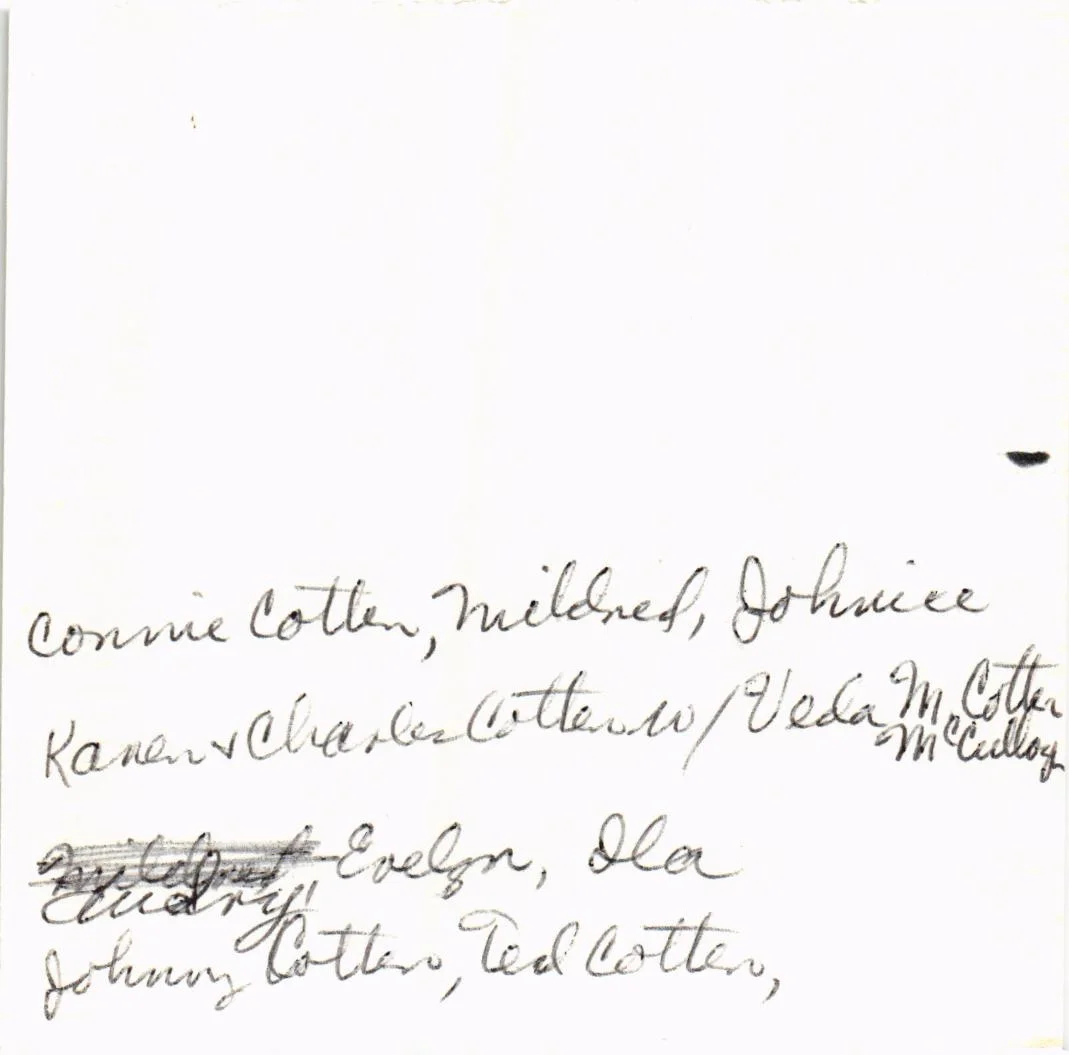 Connie Cotten, Mildred, Johniee
Karen & Charles Cotten w/ Veda M Cotten
McCulloy
Mildred Evelyn, Ila
Audry,
Johnny Cotten, Ted Cotten,